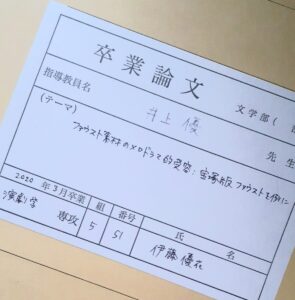 卒業論文
文学部(
指導教員名 井上優 先生
(テーマ)
ファウスト素材のメロドラマ的受容:宝塚版ファウストを例に
2020年3月卒業 組 番号 氏名
演劇学専攻 5 51 伊藤優花